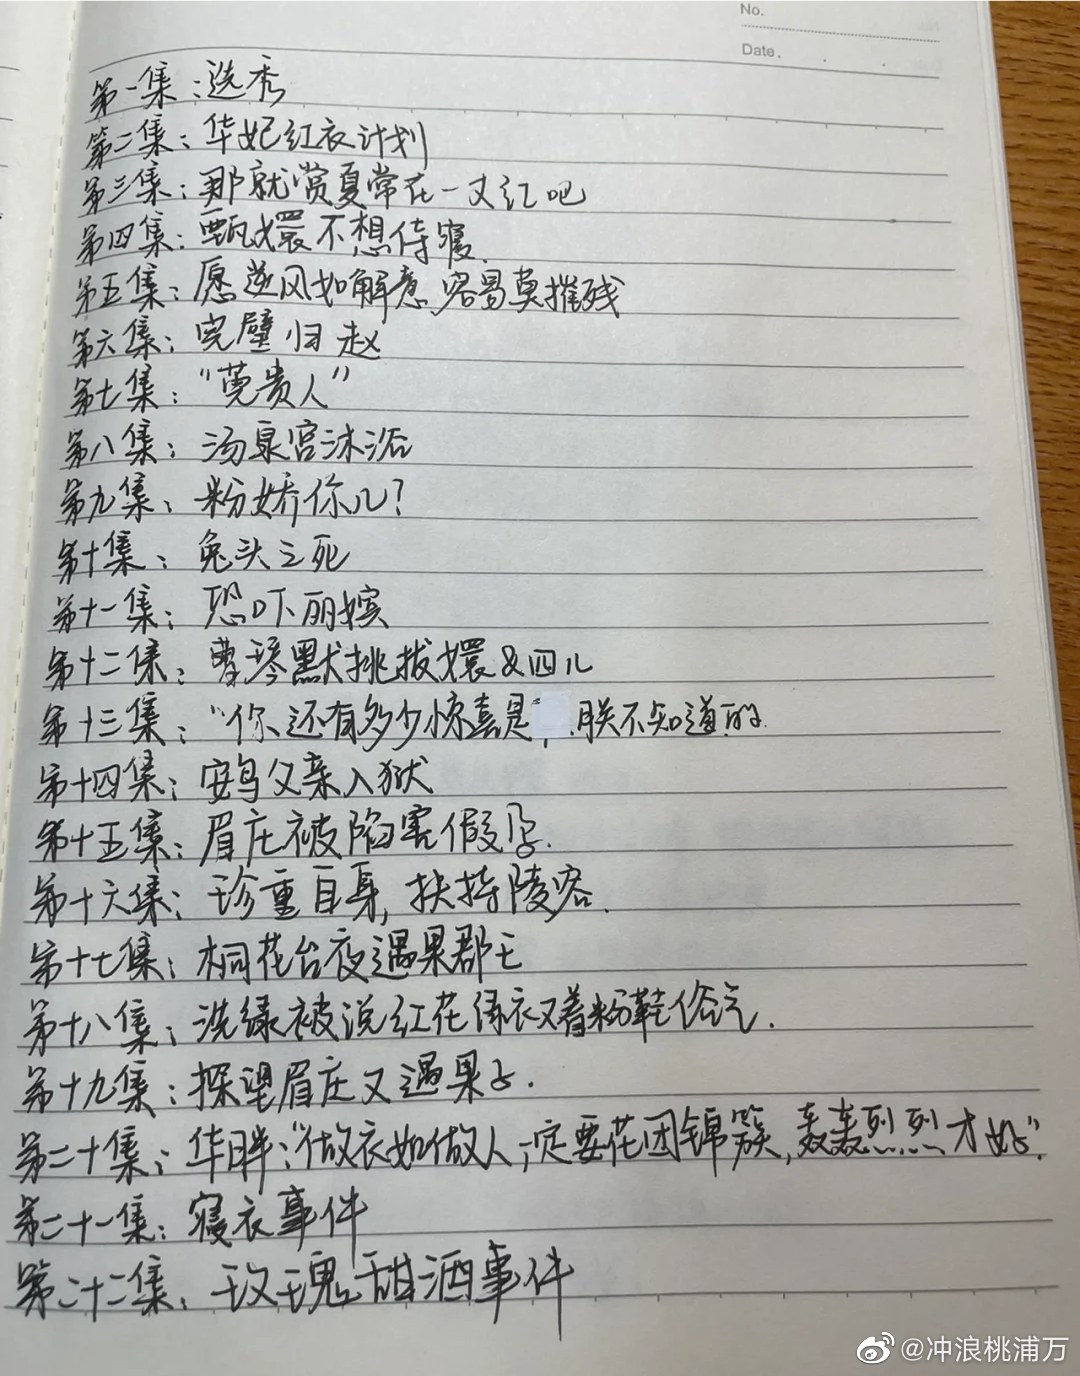 No.
Date.
第一集:选秀
第二集:华妃红衣计划
第三集:那就赏夏常在一丈红吧
第四集:甄嬛不想侍寝.
第五集:愿逆风如解意,容易莫摧残
第六集:完璧归赵
第七集:“莞贵人”
第八集:汤泉宫沐浴
第九集:粉娇你儿?
第十集:兔头之死
第十一集:恐吓丽嫔
第十二集:曹琴默挑拔嬛&四儿
第十三集:“你还有多少惊喜是 朕不知道的.
第十四集:安鸟父亲入狱
第十五集:眉庄被陷害假孕.
第十六集:珍重自身,扶持陵容.
第十七集:桐花台夜遇果郡王
第十八集:浣绿被说红花绿衣又着粉鞋俗气.
第十九集:探望眉庄又遇果子.
第二十集:华胖:“做衣如做人,一定要花团锦簇,轰轰烈烈才好”.
第二十一集:寝衣事件
第二十二集:玫瑰甜酒事件
@冲浪桃浦万